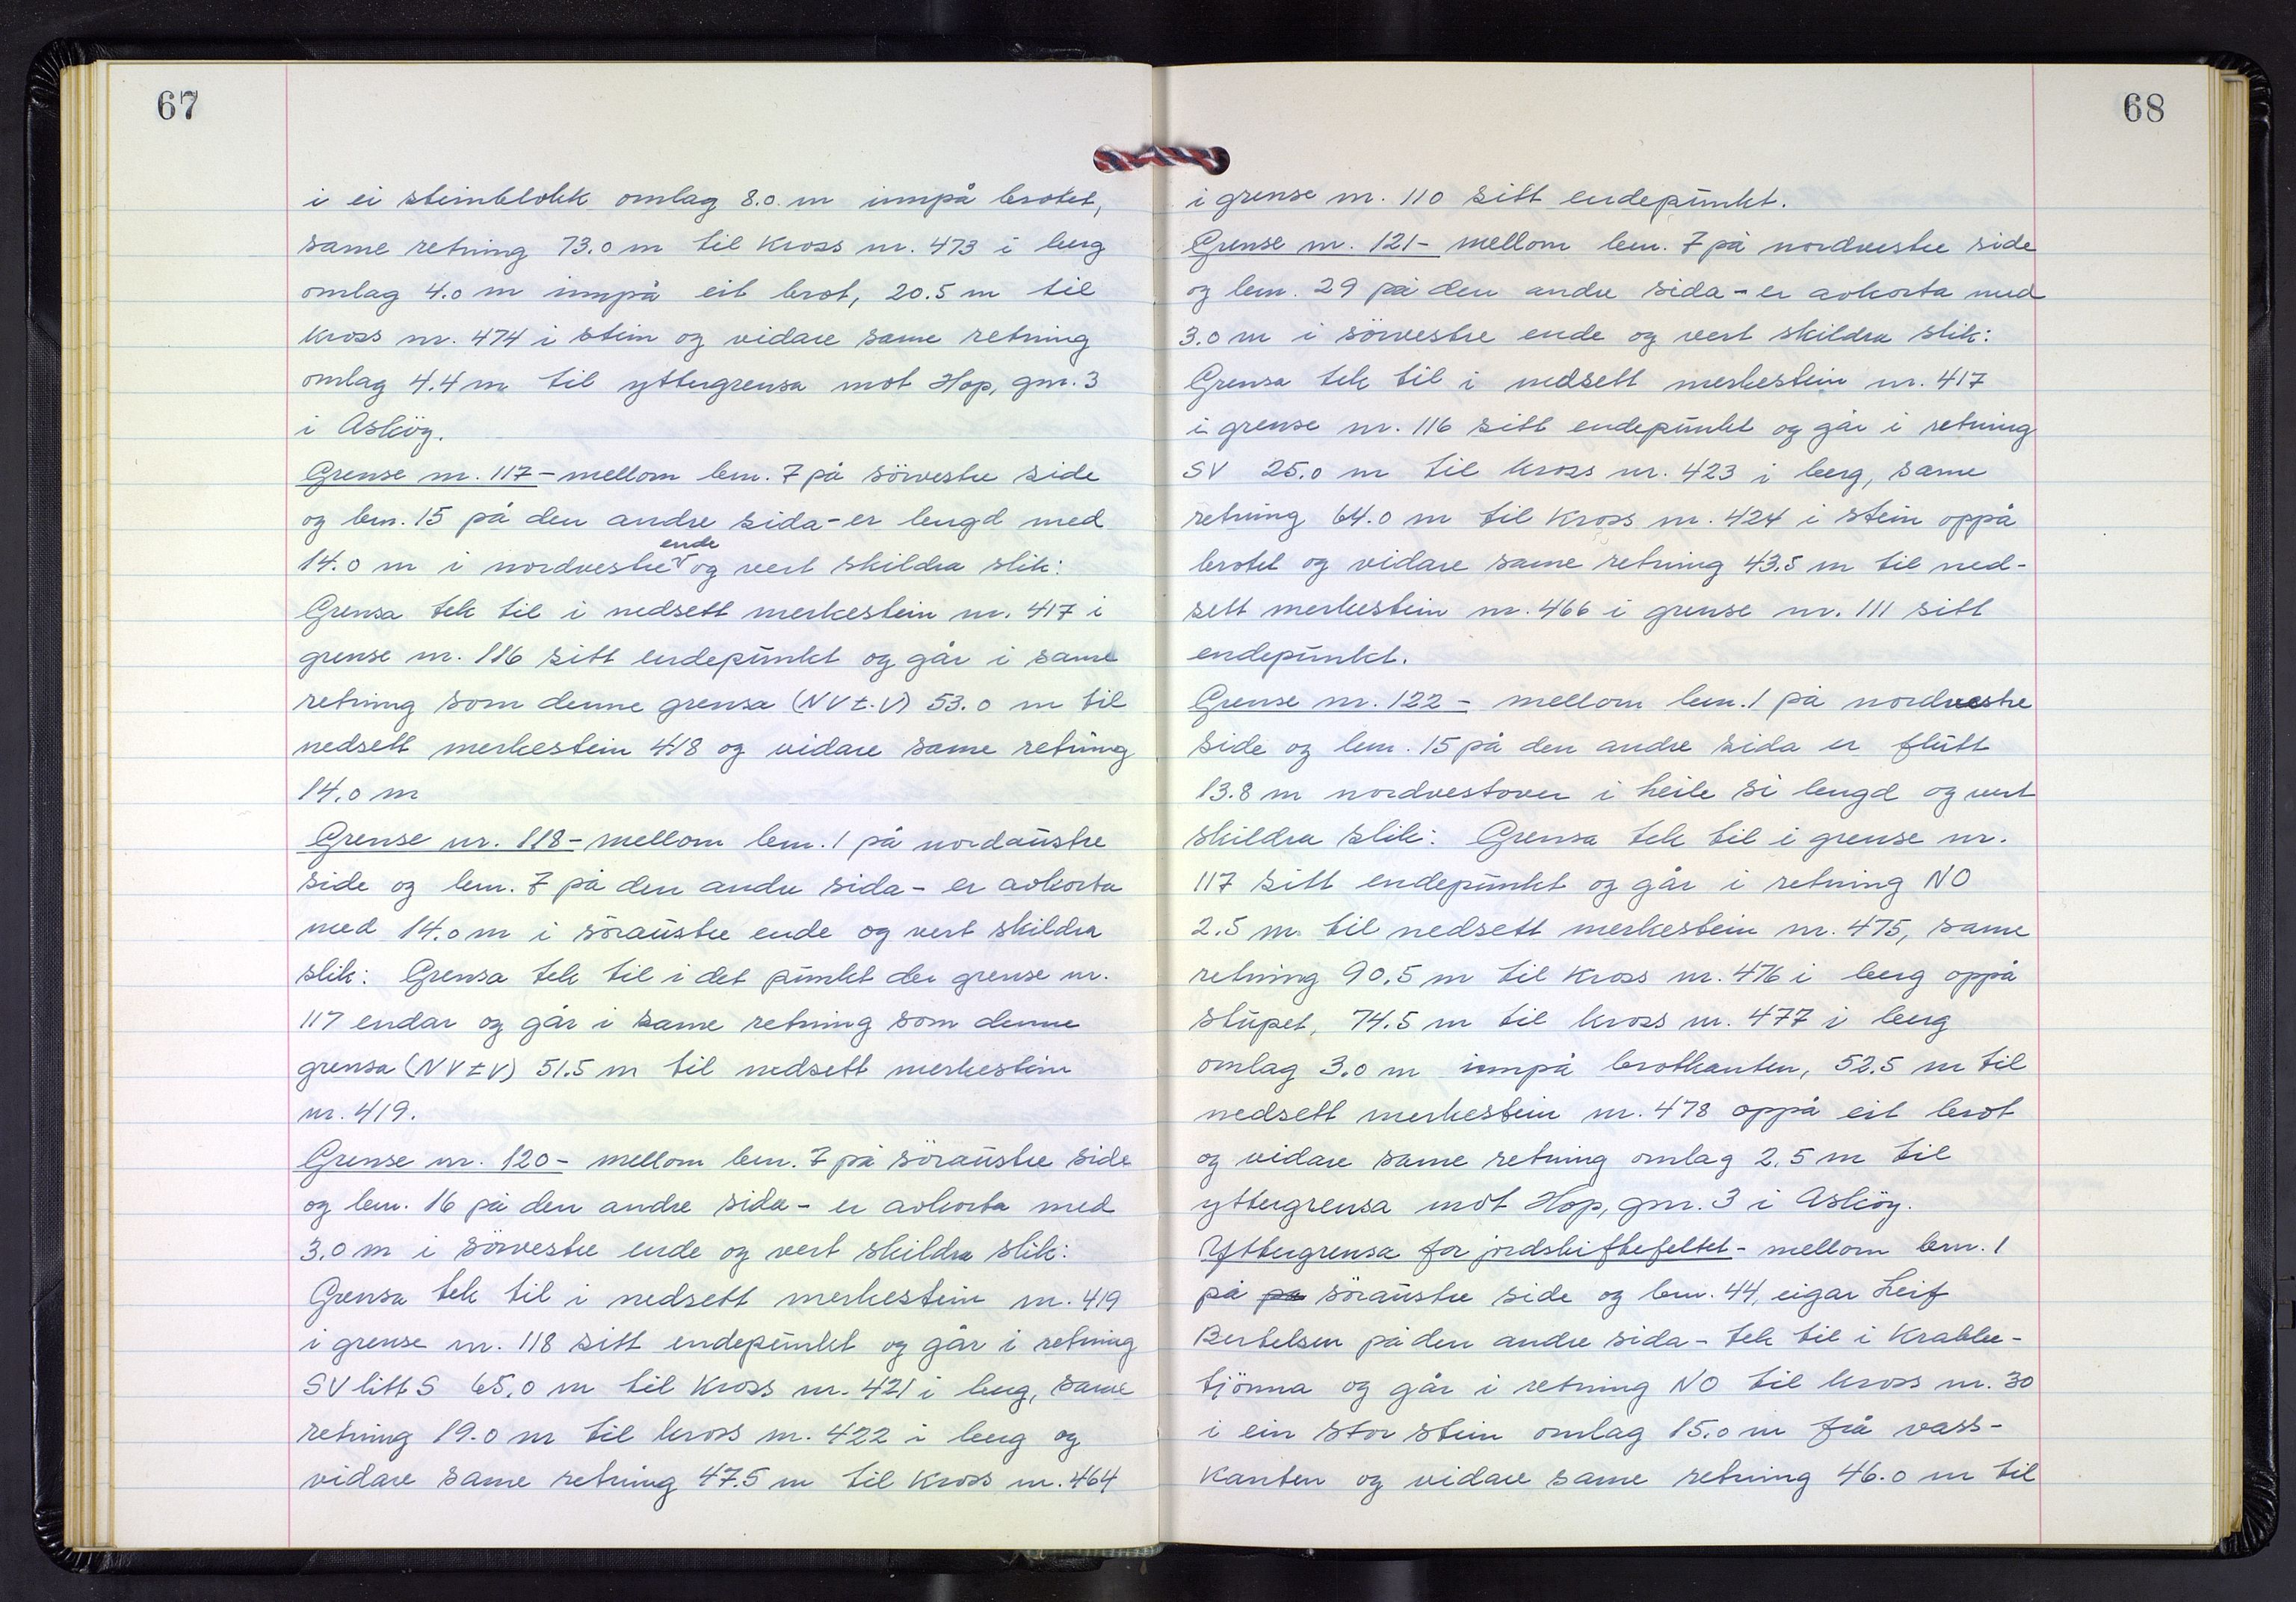 67
i ei steinblokk omlag 8.0 m innpå brotet,
same retning 73.0 m til kross nr. 473 i berg
omlag 4.0 m innpå eit brot, 20.5 m til
kross nr. 474 i stein og vidare same retning
omlag 4.4 m til yttergrensa mot Hop, gnr. 3
i Asköy.
Grense nr. 117 - mellom bnr. 7 på sörvestre side
og bnr. 15 på den andre sida - er lengd med
14.0 m i nordvestre ende og vert skildra slik:
Grensa tek til i nedsett merkestein nr. 417 i
grense nr. 116 sitt endepunkt og går i same
retning som denne grensa (NV t. V) 53.0 m til
nedsett merkestein 418 og vidare same retning
14.0 m
Grense nr. 118 - mellom bnr. 1 på nordaustre
side og bnr. 7 på den andre sida - er avkorta
med 14.0 m i söraustre ende og vert skildra
slik: Grensa tek til i det punkt der grense nr.
117 endar og går i same retning som denne
grensa (NV t V) 51.5 m til nedsett merkestein
nr. 419.
Grense nr. 120 - mellom bnr. 7 på söraustre side
og bnr. 16 på den andre sida - er avkorta med
3.0 m i sörvestre ende og vert skildra slik:
Grensa tek til i nedsett merkestein nr. 419
i grense nr. 118 sitt endepunkt og går i retning
SV litt S 65.0 m til kross nr. 421 i berg, same
retning 19.0 m til kross nr. 422 i berg og
vidare same retning 47.5 m til kross nr. 464
68
i grense nr. 110 sitt endepunkt.
Grense nr. 121 - mellom bnr. 7 på nordvestre side
og bnr. 29 på den andre sida - er avkorta med
3.0 m i sörvestre ende og vert skildra slik:
Grensa tek til i nedsett merkestein nr. 417
i grense nr. 116 sitt endepunkt og går i retning
SV 25.0 m til kross nr. 423 i berg, same
retning 64.0 m til kross nr. 424 i stein oppå
brotet og vidare same retning 43.5 m til ned-
sett merkestein nr. 466 i grense nr. 111 sitt
endepunkt.
Grense nr. 122 - mellom bnr. 1 på nordvestre
side og bnr. 15 på den andre sida er flutt
13.8 m nordvestover i heile si lengd og vert
skildra slik: Grensa tek til i grense nr.
117 sitt endepunkt og går i retning NO
2.5 m til nedsett merkestein nr. 475, same
retning 90.5 m til kross nr. 476 i berg oppå
stupet, 74.5 m til kross nr. 477 i berg
omlag 3.0 m innpå brotkanten, 52.5 m til
nedsett merkestein nr. 478 oppå eit brot
og vidare same retning omlag 2.5 m til
yttergrensa mot Hop, gnr. 3 i Asköy.
Yttergrensa for jordskiftefeltet - mellom bnr. 1
på på söraustre side og bnr. 44, eigar Leif
Bertelsen på den andre sida - tek til i Krabbe-
tjönna og går i retning NO til kross nr. 30
i ein stor stein omlag 15.0 m frå vass-
kanten og vidare same retning 46.0 m til